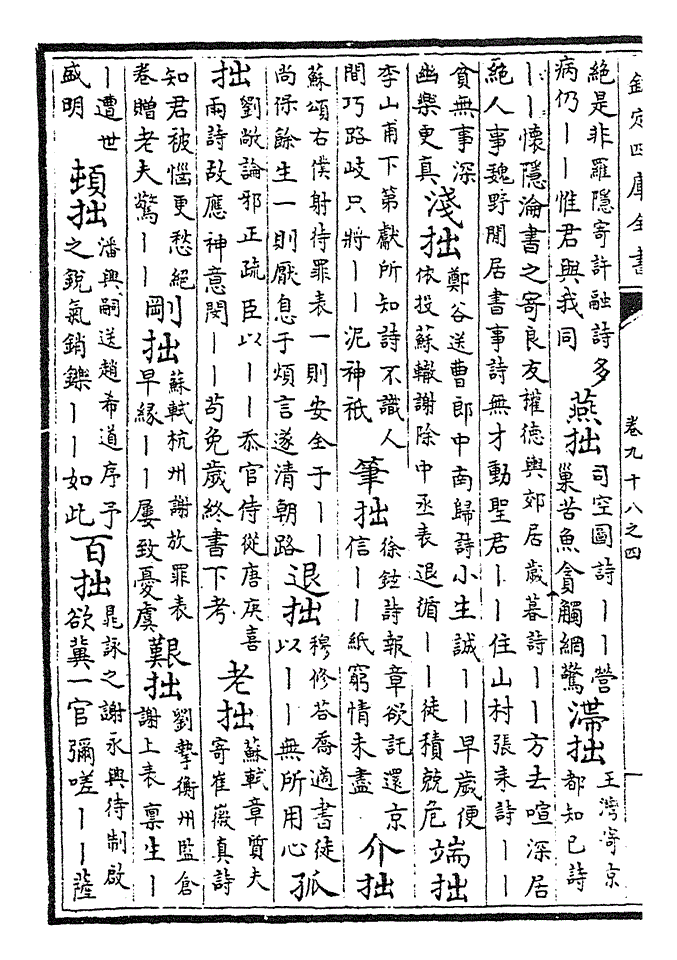 欽定四庫全書 卷九十八之四 一
絶是非羅隱寄許融詩多
病仍丨丨惟君與我同
燕拙
司空圖詩丨丨營
巢苦魚貪觸網驚
滯拙
王灣寄京
都知已詩
丨丨懷隱淪書之寄良友權德輿郊居歲暮詩丨丨方去喧深居
絶人事魏野閒居書事詩無才動聖君丨丨住山村張耒詩丨丨
貧無事深
幽樂更真
淺拙
鄭谷送曹郎中南歸詩小生誠丨丨早歲便
依投蘇轍謝除中丞表退循丨丨徒積兢危
端拙
李山甫下第獻所知詩不識人
間巧路岐只將丨丨泥神祇
筆拙
徐鉉詩報章欲託還京
信丨丨紙窮情未盡
介拙
蘇頌右僕射待罪表一則安全于丨丨
尚保餘生一則厭息于煩言遂清朝路
退拙
穆修荅喬適書徒
以丨丨無所用心
孤
拙
劉敞論邪正疏臣以丨丨忝官侍從唐庚喜
雨詩故應神意閔丨丨茍免歲終書下考
老拙
蘇軾章質夫
寄崔徽真詩
知君被惱更愁絶
卷贈老夫驚丨丨
剛拙
蘇軾杭州謝放罪表
早緣丨丨屢致憂虞
艱拙
劉摯衡州監倉
謝上表稟生丨
丨遭世
盛明
頓拙
潘興嗣送趙希道序予
之銳氣銷鑠丨丨如此
百拙
晁詠之謝永興待制啟
欲冀一官彌嗟丨丨薩